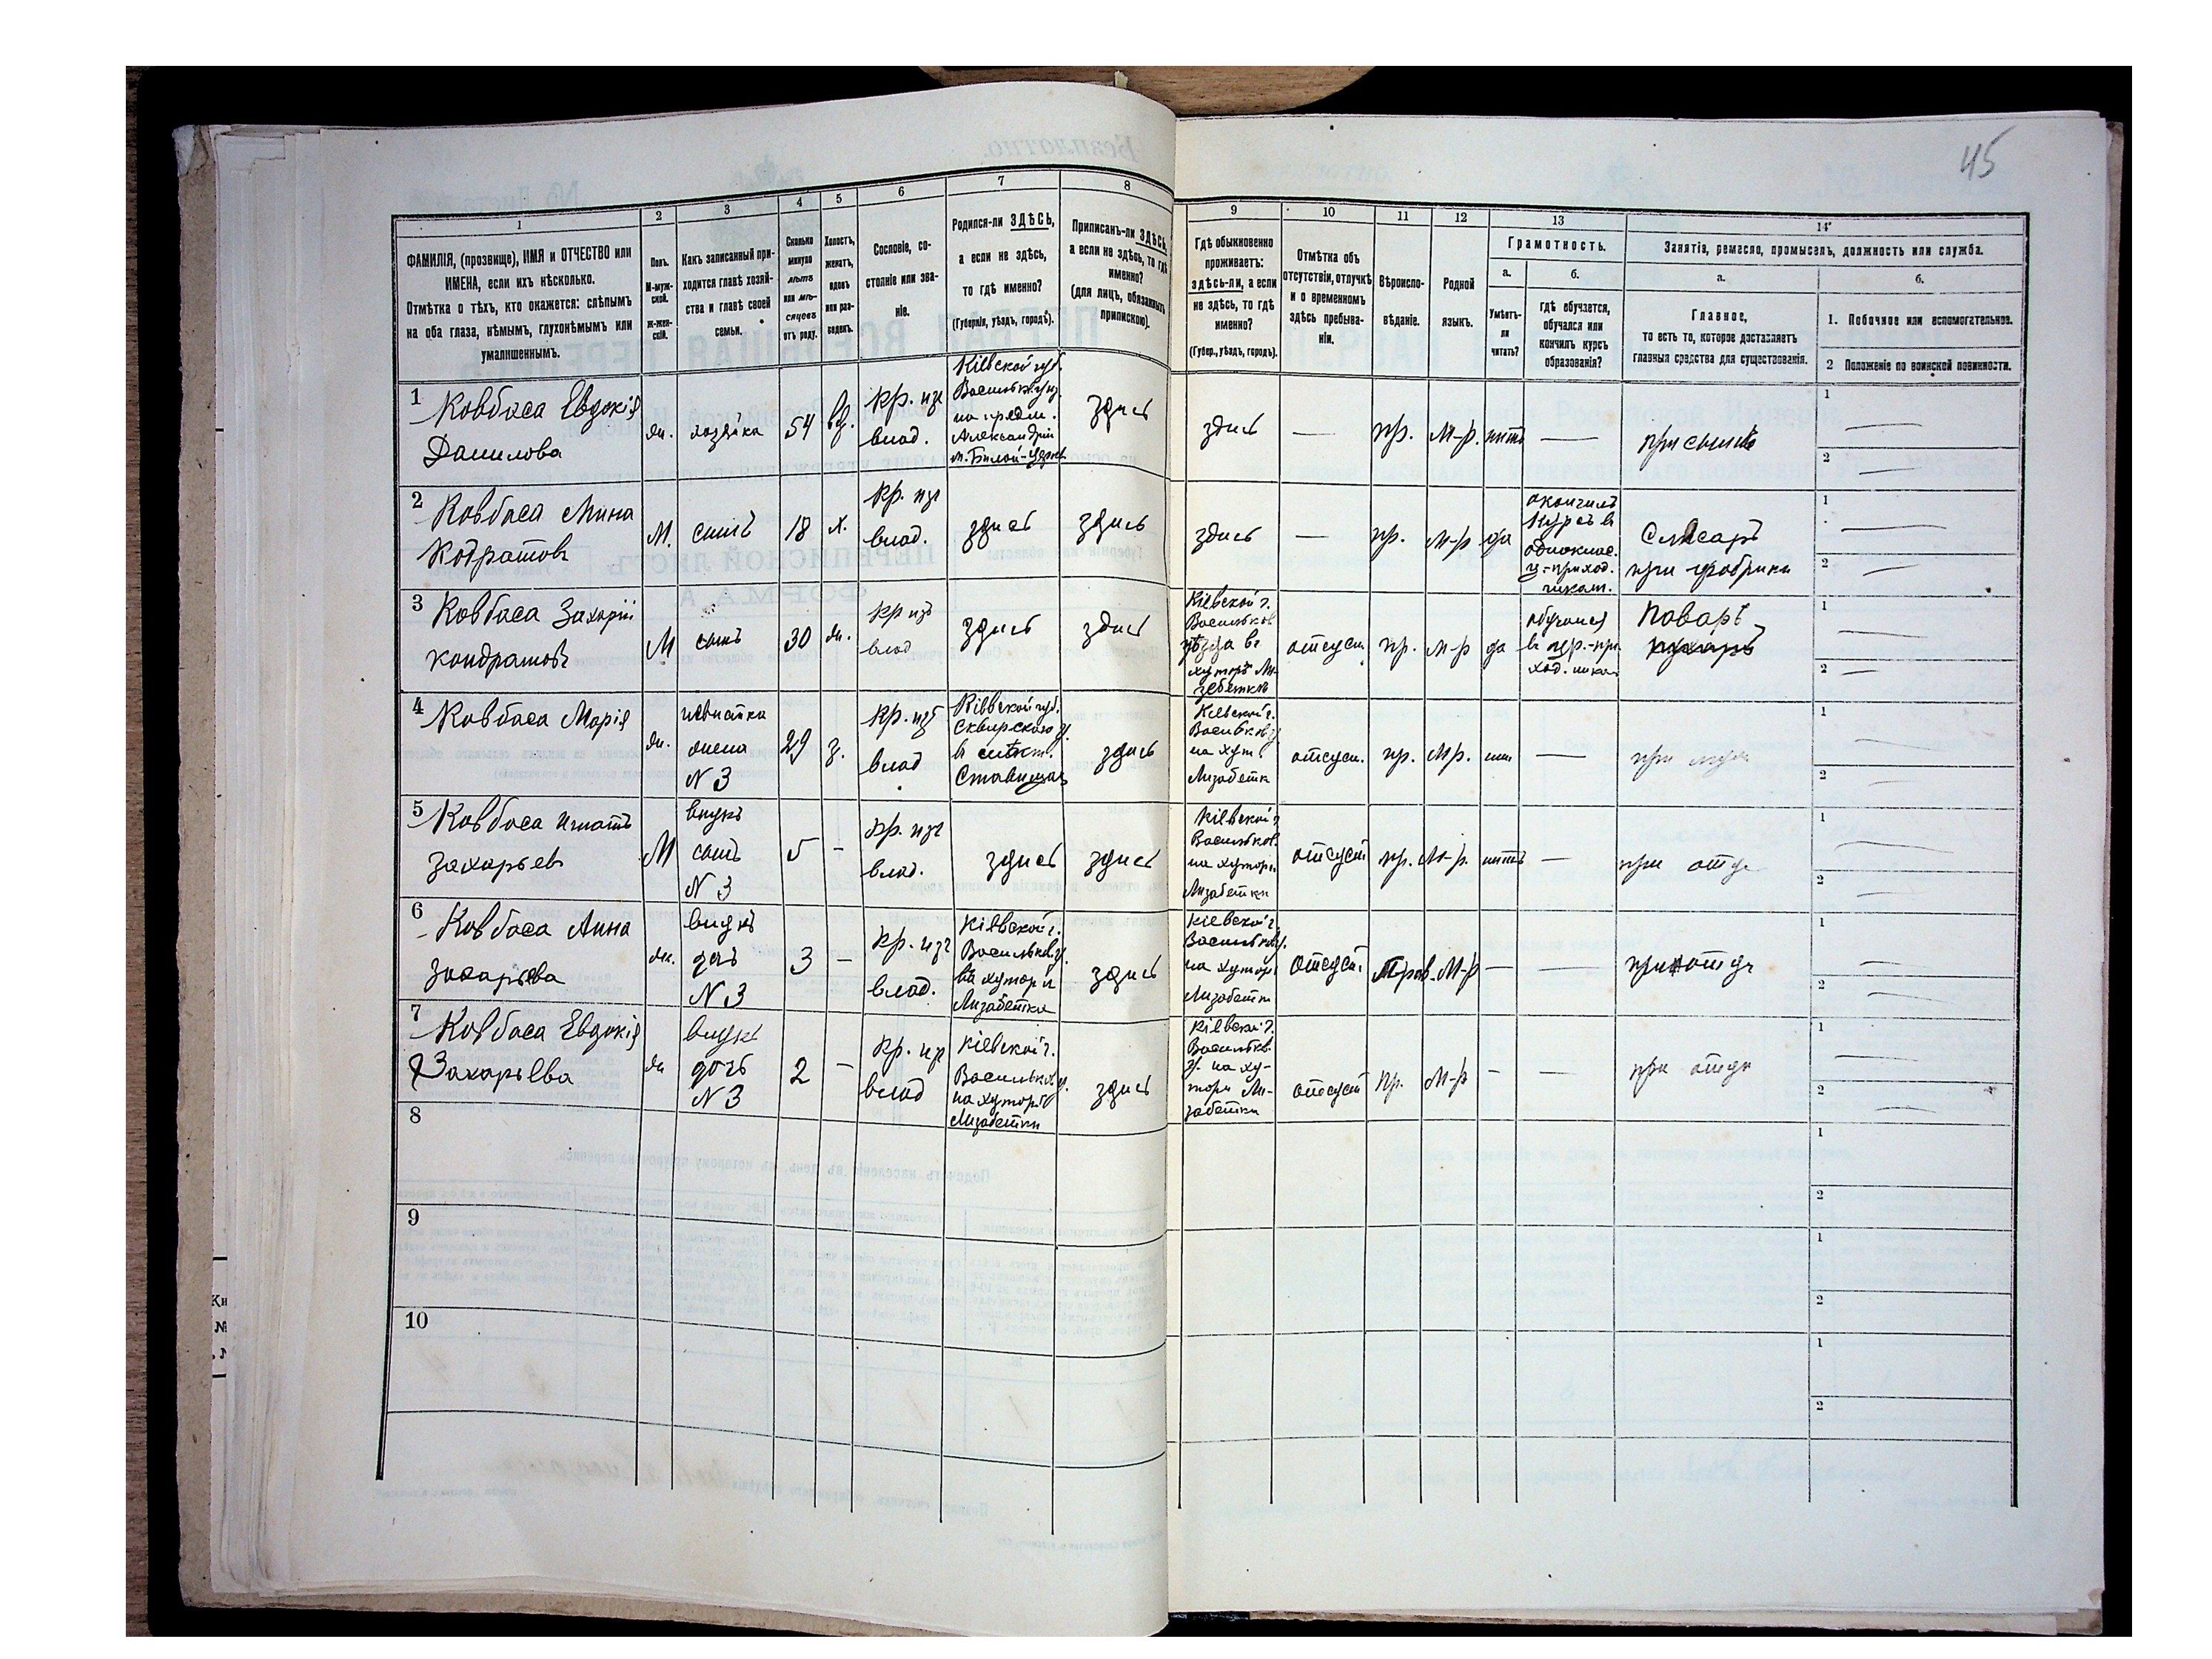 45
1
2
3
4
5
6
7
8
9
10
11
12
13
14
ФАМИЛІЯ, (прозвище), ИМЯ и ОТЧЕСТВО или
ИМЕНА, если ихъ нѣсколько.
Отмѣтка о тѣхъ, кто окажется: слѣпымъ
на оба глаза, нѣмымъ, глухонѣмымъ или
умалишеннымъ.
Полъ.
М-муж-
ской.
Ж-жен-
скій.
Какъ записанный при-
ходится главѣ хозяй-
ства и главѣ своей
семьи.
Сколько
минуло
лѣтъ
или мѣ-
сяцевъ
отъ роду.
Холостъ,
женатъ,
вдовъ
или раз-
веденъ.
Сословіе, со-
стояніе или зва-
ніе.
Родился-ли ЗДѢСЬ,
а если не здѣсь,
то гдѣ именно?
(Губернія, уѣздъ, городъ).
Приписанъ-ли ЗДѢСЬ,
а если не здѣсь, то гдѣ
именно?
(для лицъ, обязанныхъ
припискою).
Гдѣ обыкновенно
проживаетъ:
здѣсь-ли, а если
не здѣсь, то гдѣ
именно?
(Губер., уѣздъ, городъ).
Отмѣтка объ
отсутствіи, отлучкѣ
и о временномъ
здѣсь пребыва-
ніи.
Вѣроиспо-
вѣданіе.
Родной
языкъ.
Грамотность.
а.
Умѣетъ-
ли
читать?
б.
гдѣ обучается,
обучался или
кончилъ курсъ
образованія?
Занятія, ремесло, промыселъ, должность или служба.
а.
Главное,
то есть то, которое доставляетъ
главныя средства для существованія.
б.
1. Побочное или вспомогательное.
2 Положеніе по воинской повинности.
1 Ковбаса Евдокія
Данилова
жн. хозяйка 54 вд.
кр. изъ
влад.
Кіевской губ.
м. Бѣлой-Церкв
здись
здись
— пр. М-р. нитъ —
при сынѣ
1 —
2 —
2 Ковбаса Мина
Кодратовъ
М. синъ 18 х.
кр. изъ
влад.
здись здись
здись — пр. М-р да
окончилъ
курсъ в
Слюсаръ
при фабрики
1 —
2 —
3 Ковбаса Захарій
кондратовъ
М синъ 30 жн.
кр изъ
влад
здись здись
Кіевской г.
Васильков
уѣзда въ
хуторѣ Ли-
отсусти. пр. М-р да
обучался
в цер.-при
ход. шкал
поваръ
1 —
2 —
4 Ковбаса Марія
жн.
невистка
жена
N 3
29 з.
кр. изъ
влад
Кіевской губ.
Сквирскою у.
Ставищах
здись
Кіевской г.
Васильков у
на хут
Лизабетк
отсуст. пр. М-р. нит —
при
1 —
2 —
5 Ковбаса Игнатъ
захарьев
М
внукъ
синъ
N 3
5 —
кр. изъ
влад.
здись здись
Кіевской г
Васильков.
на хутори
Лизабетки
отсуст пр. М-р. нитъ —
при отце
1 —
2 —
6 Ковбаса Анна
захарьева
жн.
внукъ
дочъ
N 3
3 —
кр. изъ
влад.
Кіевской г.
Васильков у.
на хутори
Лизабетки
здись
Кіевской г.
Васильков у.
на хутори
Лизабетки
отсуст прав. М-р — —
при отци
1 —
2 —
7 Ковбаса Евдокія
Захарьева
жн
внукъ
дочъ
N 3
2 —
кр. изъ
влад
Кіевской г.
Васильков у.
на хуторѣ
Лизабетки
здись
Кіевской г.
Васильков.
у. на ху-
тори Ли-
забетки
отсуст пр. М-р — —
при отци
1 —
2 —
8
1
2
9
1
2
10
1
2